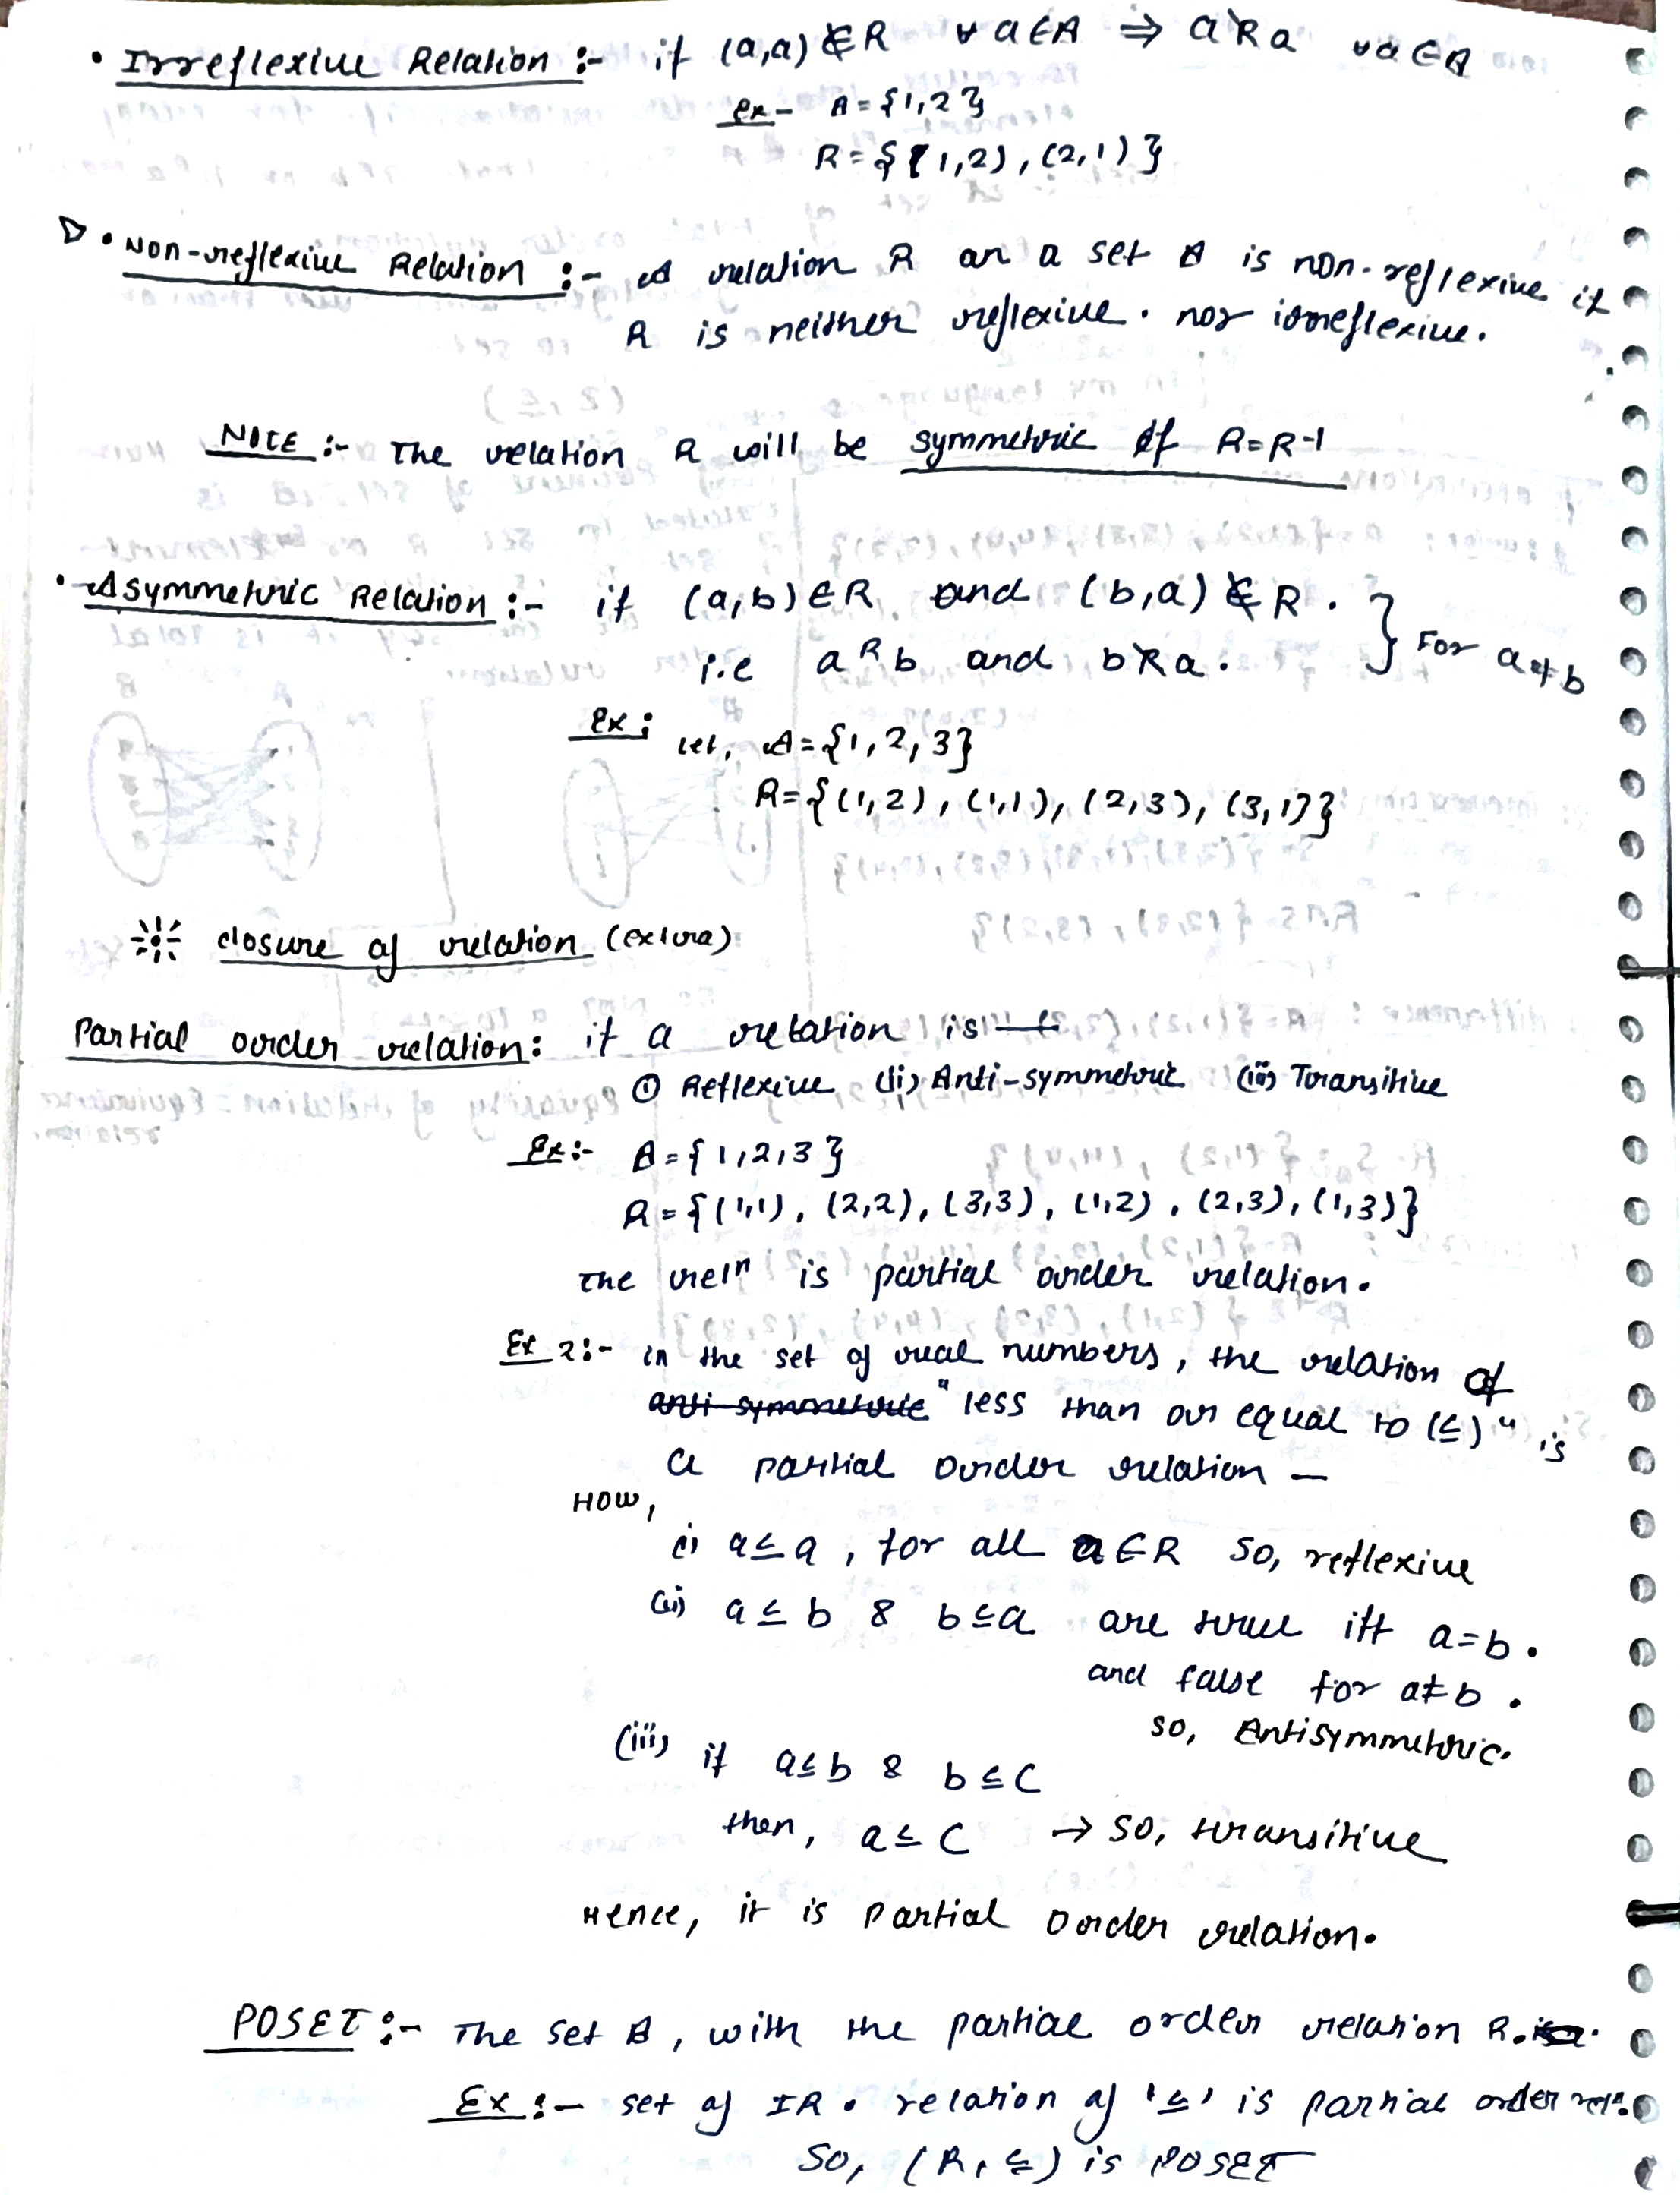 • Irreflexive Relation :- if (a,a) ∉ R ∀ a ∈ A ⇒ a R̸ a ∀ a ∈ A
ex - A = {1,2}
R = {(1,2), (2,1)}
▷ • Non-reflexive Relation :- A relation R on a set A is non-reflexive if
R is neither reflexive. nor irreflexive.
NOTE :- The relation R will be symmetric if R=R-1
• Asymmetric Relation :- if (a,b) ∈ R and (b,a) ∉ R .
i.e a R b and b R̸ a . } For a ≠ b
Ex : let, A = {1, 2, 3}
R = {(1,2), (1,1), (2,3), (3,1)}
closure of relation (extra)
Partial order relation : if a relation is
(i) Reflexive (ii) Anti-symmetric (iii) Transitive
Ex :- A = {1,2,3}
R = {(1,1), (2,2), (3,3), (1,2), (2,3), (1,3)}
The relⁿ is partial order relation.
Ex 2 :- in the set of real numbers, the relation of
anti-symmetric "less than or equal to (≤)" is
a partial order relation —
How,
(i) a ≤ a , for all a ∈ R so, reflexive
(ii) a ≤ b & b ≤ a are true iff a = b .
and false for a ≠ b .
so, Antisymmetric.
(iii) if a ≤ b & b ≤ c
then, a ≤ c → so, transitive
Hence, it is partial order relation.
POSET :- The set A, with the partial order relation R.
Ex :- set of IR . relation of '≤' is partial order relⁿ.
So, (R, ≤) is POSET